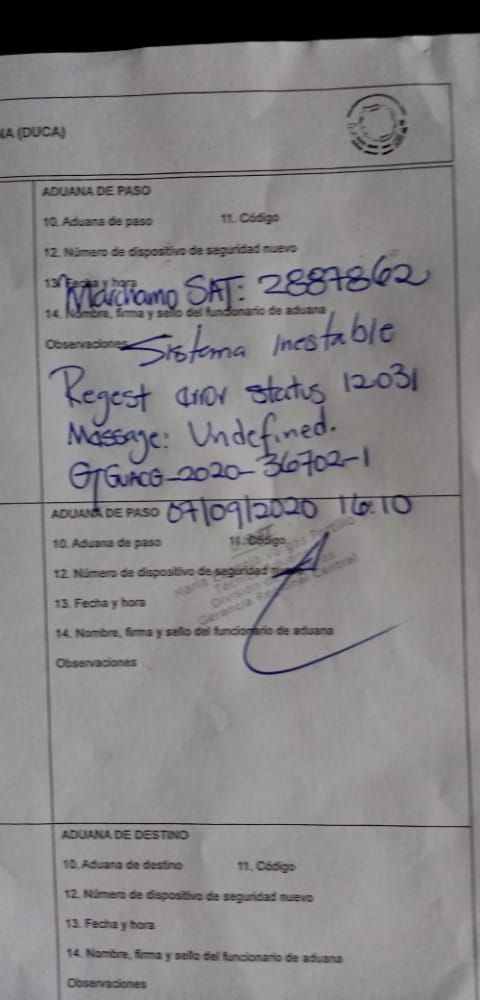 NA (DUCA)
ADUANA DE PASO
10. Aduana de paso 11. Código
12. Número de dispositivo de seguridad nuevo
13. Fecha y hora
Marchamo SAT: 2887862
14. Nombre, firma y sello del funcionario de aduana
Observaciones Sistema inestable
Regest error status 12031
Massage: Undefined.
GTGUACG-2020-36702-1
ADUANA DE PASO 07/09/2020 16:10
10. Aduana de paso 11. Código
12. Número de dispositivo de seguridad nuevo
13. Fecha y hora
División
Gerencia Regional Central
14. Nombre, firma y sello del funcionario de aduana
Observaciones
ADUANA DE DESTINO
10. Aduana de destino 11. Código
12. Número de dispositivo de seguridad nuevo
13. Fecha y hora
14. Nombre, firma y sello del funcionario de aduana
Observaciones